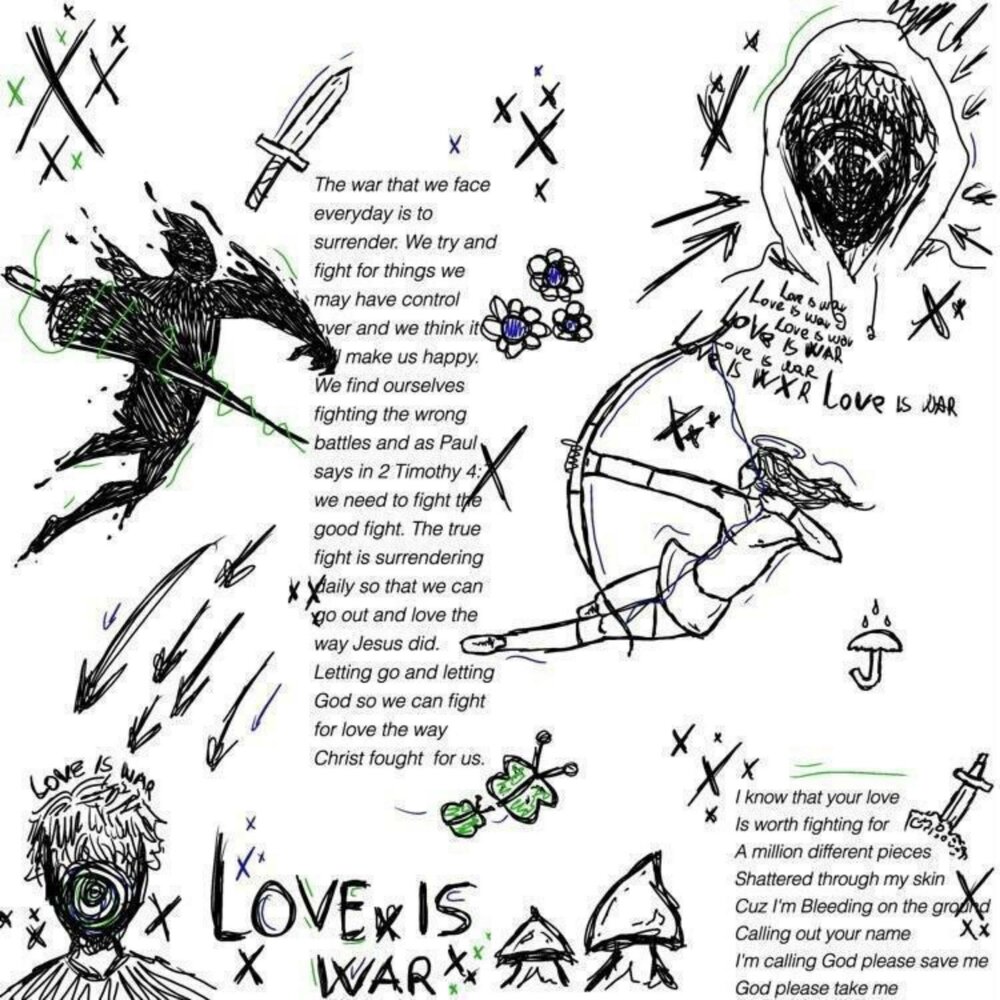 The war that we face
everyday is to
surrender. We try and
fight for things we
may have control
over and we think it
make us happy.
We find ourselves
fighting the wrong
battles and as Paul
says in 2 Timothy 4:
we need to fight the
good fight. The true
fight is surrendering
daily so that we can
go out and love the
way Jesus did.
Letting go and letting
God so we can fight
for love the way
Christ fought for us.
Love is war
Love is war
Love is war
LOVE IS WAR
Love is WAR
LOVE IS WXR
LOVE IS WAR
LOVE IS WAR
LOVEX IS
WAR
I know that your love
Is worth fighting for
A million different pieces
Shattered through my skin
Cuz I'm Bleeding on the ground
Calling out your name
I'm calling God please save me
God please take me